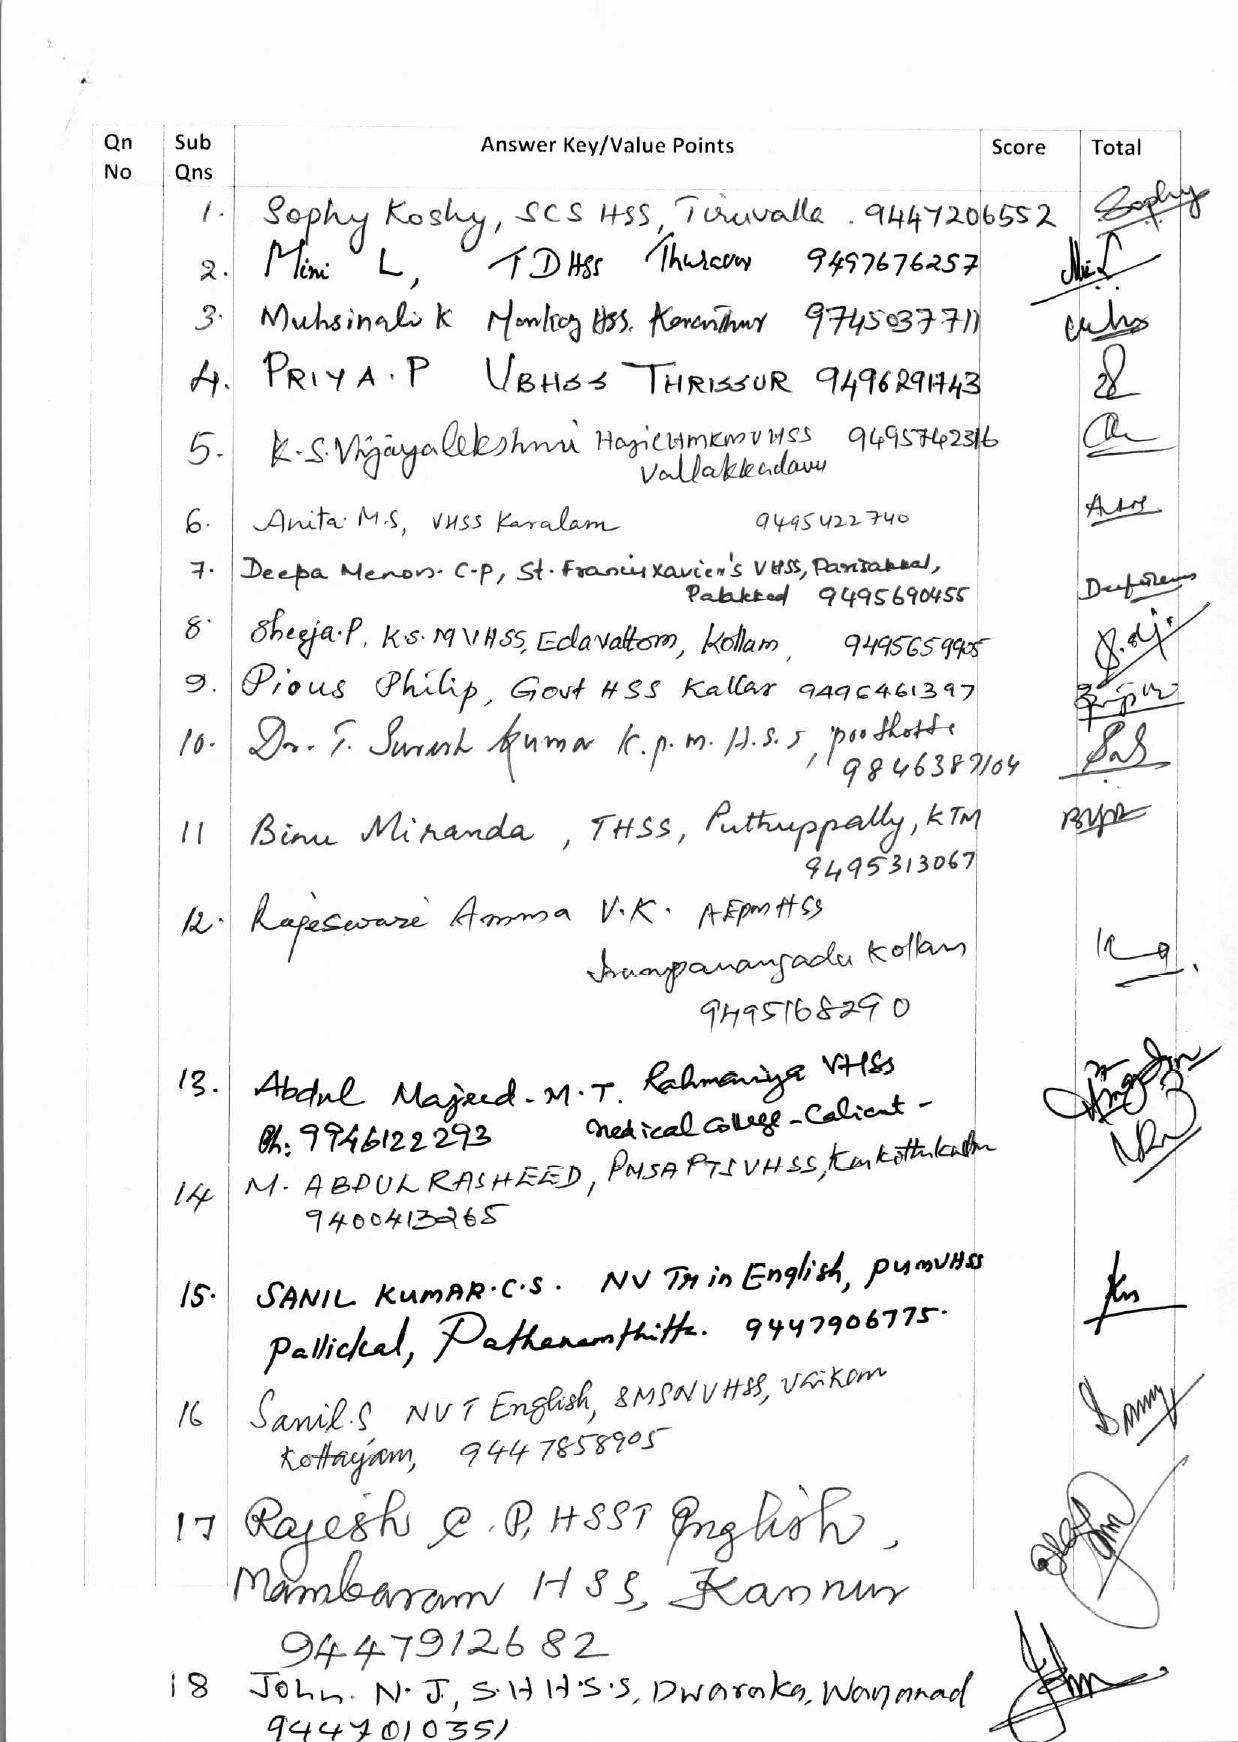 Qn No Sub Qns Answer Key/Value Points Score Total
1. Sophy Koshy, SCS HSS, Tiruvalla. 9447206552 Sophy
2. Mini L, TDHSS Thuravoor 9497676257
3. Muhsinali K Markaz HSS. Karanthur 9745037711
4. PRIYA.P VBHSS THRISSUR 9496291743
5. K.S.Vijayalekshmi HajiCHMKMVHSS 9495742316
Vallakkadavu
6. Anita M.S, VHSS Karalam 9495422740
7. Deepa Menon. C-P, St. Francis Xavier's VHSS,
Palakkad 9495690455
8. Sheeja.P, K.S.MVHSS, Edavattom, Kollam, 9495659905
9. Pious Philip, Govt HSS Kallar 9496461397
10. Dr. T. Suresh Kumar K.p.m. H.S.S, poothotta
9846387104
11 Binu Miranda, THSS, Puthuppally, KTM
9495313067
12. Rajeswari Amma V.K. AEPMHSS
Irumpanangadu Kollam
9495168290
13. Abdul Majeed. M.T. Rahmaniya VHSS
Ph: 9946122293 Medical College-Calicut-
14 M. ABDUL RASHEED, PMSAPTSVHSS,
9400413265
15. SANIL KUMAR.C.S. NV Tr in English, PUMVHSS
Pallickal, Pathanamthitta. 9447906775.
16 Sanil.S NVT English, SMSNVHSS, Vaikom
Kottayam, 9447858905
17 Rajesh C.P, HSST English,
Mambaram HSS, Kannur
9447912682
18 John. N.J, S.H H.S.S, Dwaraka, Wayanad John
9447010351